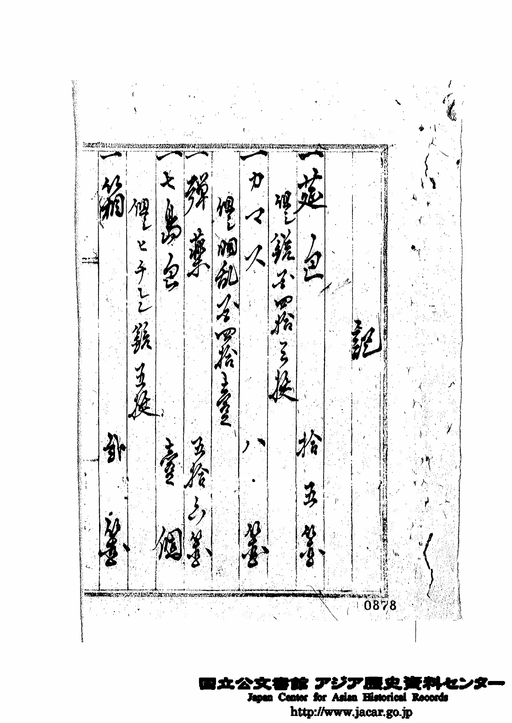 記
一 莚包 拾五箇
但銃百四拾三挺
一 カマス 八箇
但胴乱百四拾壹
一 弾薬 五拾六箇
一 七島包 壹個
但 銃五挺
一 箱 貳箇
0878
国立公文書館 アジア歴史資料センター
Japan Center for Asian Historical Records
http://www.jacar.go.jp